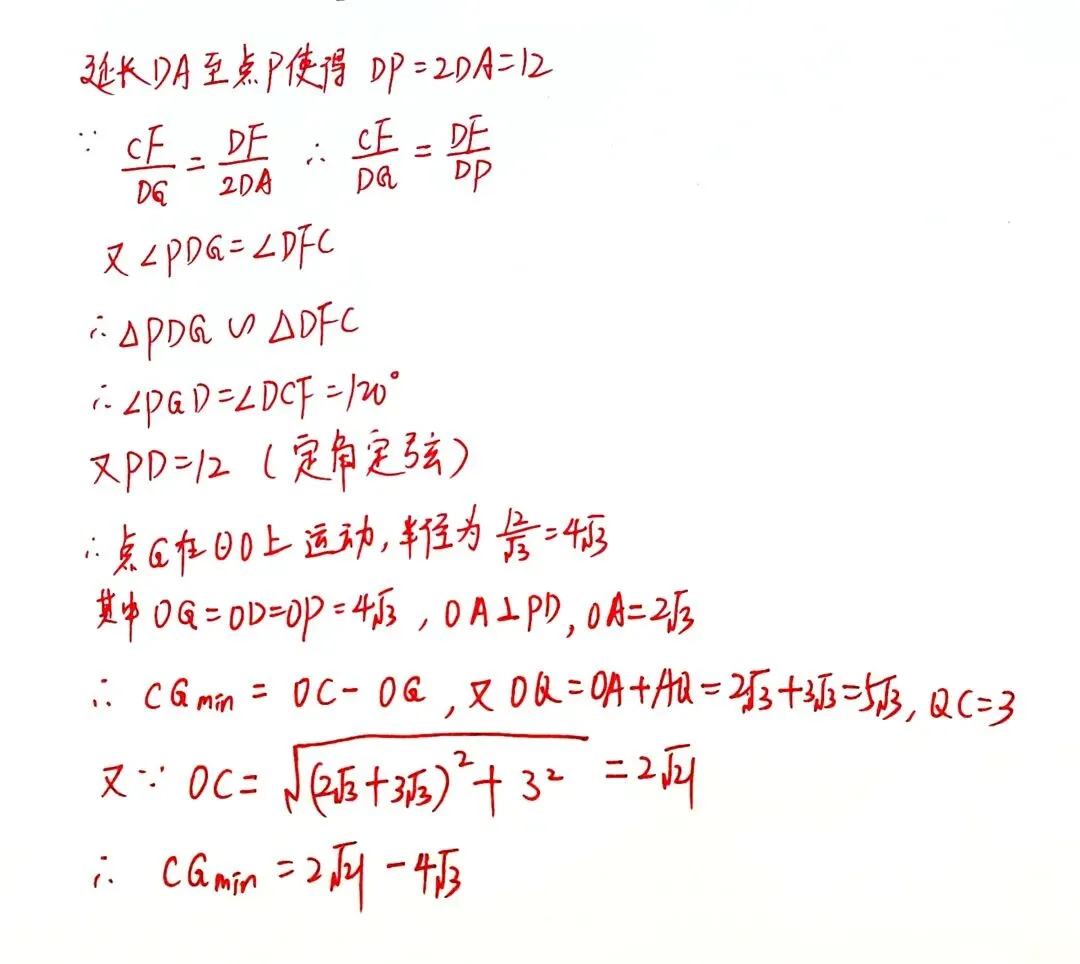 延长DA至点P使得 DP=2DA=12
∵ CF/DG = DF/2DA ∴ CF/DG = DF/DP
又∠PDG=∠DFC
∴△PDG∽△DFC
∴∠PGD=∠DCF=120°
又PD=12 (定角定弦)
∴点G在⊙O上运动,半径为 12/√3=4√3
其中OG=OD=OP=4√3, OA⊥PD, OA=2√3
∴ CGmin = OC-OG, 又OQ=OA+AQ=2√3+3√3=5√3, QC=3
又∵ OC=√((2√3+3√3)²+3²) =2√21
∴ CGmin=2√21-4√3